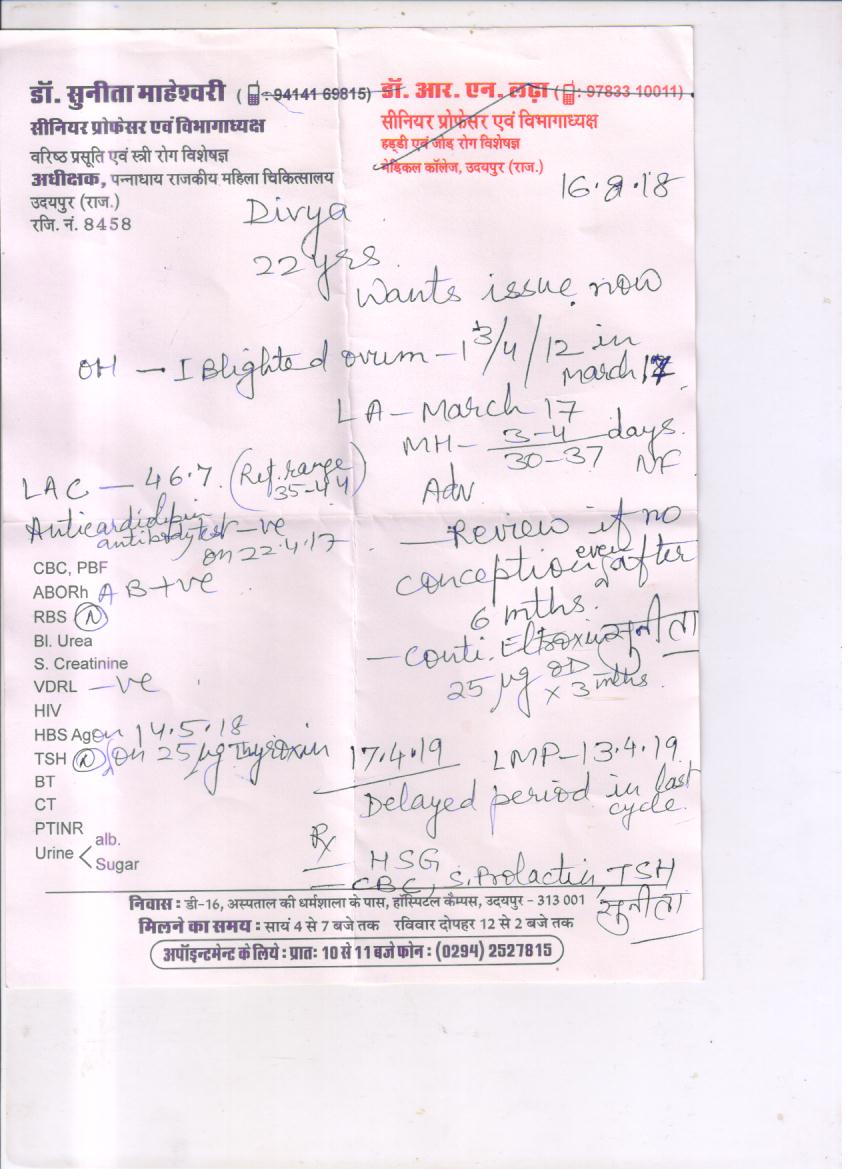 डॉ. सुनीता माहेश्वरी ( : 94141 69815)
सीनियर प्रोफेसर एवं विभागाध्यक्ष
वरिष्ठ प्रसूति एवं स्त्री रोग विशेषज्ञ
अधीक्षक, पन्नाधाय राजकीय महिला चिकित्सालय
उदयपुर (राज.)
रजि. नं. 8458
डॉ. आर. एन. लढ़ा ( : 97833 10011)
सीनियर प्रोफेसर एवं विभागाध्यक्ष
हड्डी एवं जोड़ रोग विशेषज्ञ
मेडिकल कॉलेज, उदयपुर (राज.)
16.8.18
Divya
22 yrs
Wants issue now
OH - I Blighted ovum - 1 3/4 / 12 in
March 17
LA - March 17
MH - 3-4 days
30-37 NF
LAC - 46.7 (Ref. range
35-44)
Anticardiolipin
antibody test -ve
on 22.4.17
Adv
- Review if no
conception even after
6 mths.
- Conti. Eltroxin
25 µg OD
x 3 mths
सुनीता
CBC, PBF
ABORh A B+ve
RBS (N)
Bl. Urea
S. Creatinine
VDRL -ve
HIV
HBS Ag on 14.5.18
TSH (N) (on 25 µg Thyroxin
BT
CT
PTINR
Urine < alb.
Sugar
17.4.19 LMP-13.4.19
Delayed period in last
cycle.
Rx
- HSG
- CBC, S. Prolactin, TSH
सुनीता
निवास : डी-16, अस्पताल की धर्मशाला के पास, हॉस्पिटल कैम्पस, उदयपुर - 313 001
मिलने का समय : सायं 4 से 7 बजे तक रविवार दोपहर 12 से 2 बजे तक
अपॉइन्टमेन्ट के लिये : प्रातः 10 से 11 बजे फोन : (0294) 2527815